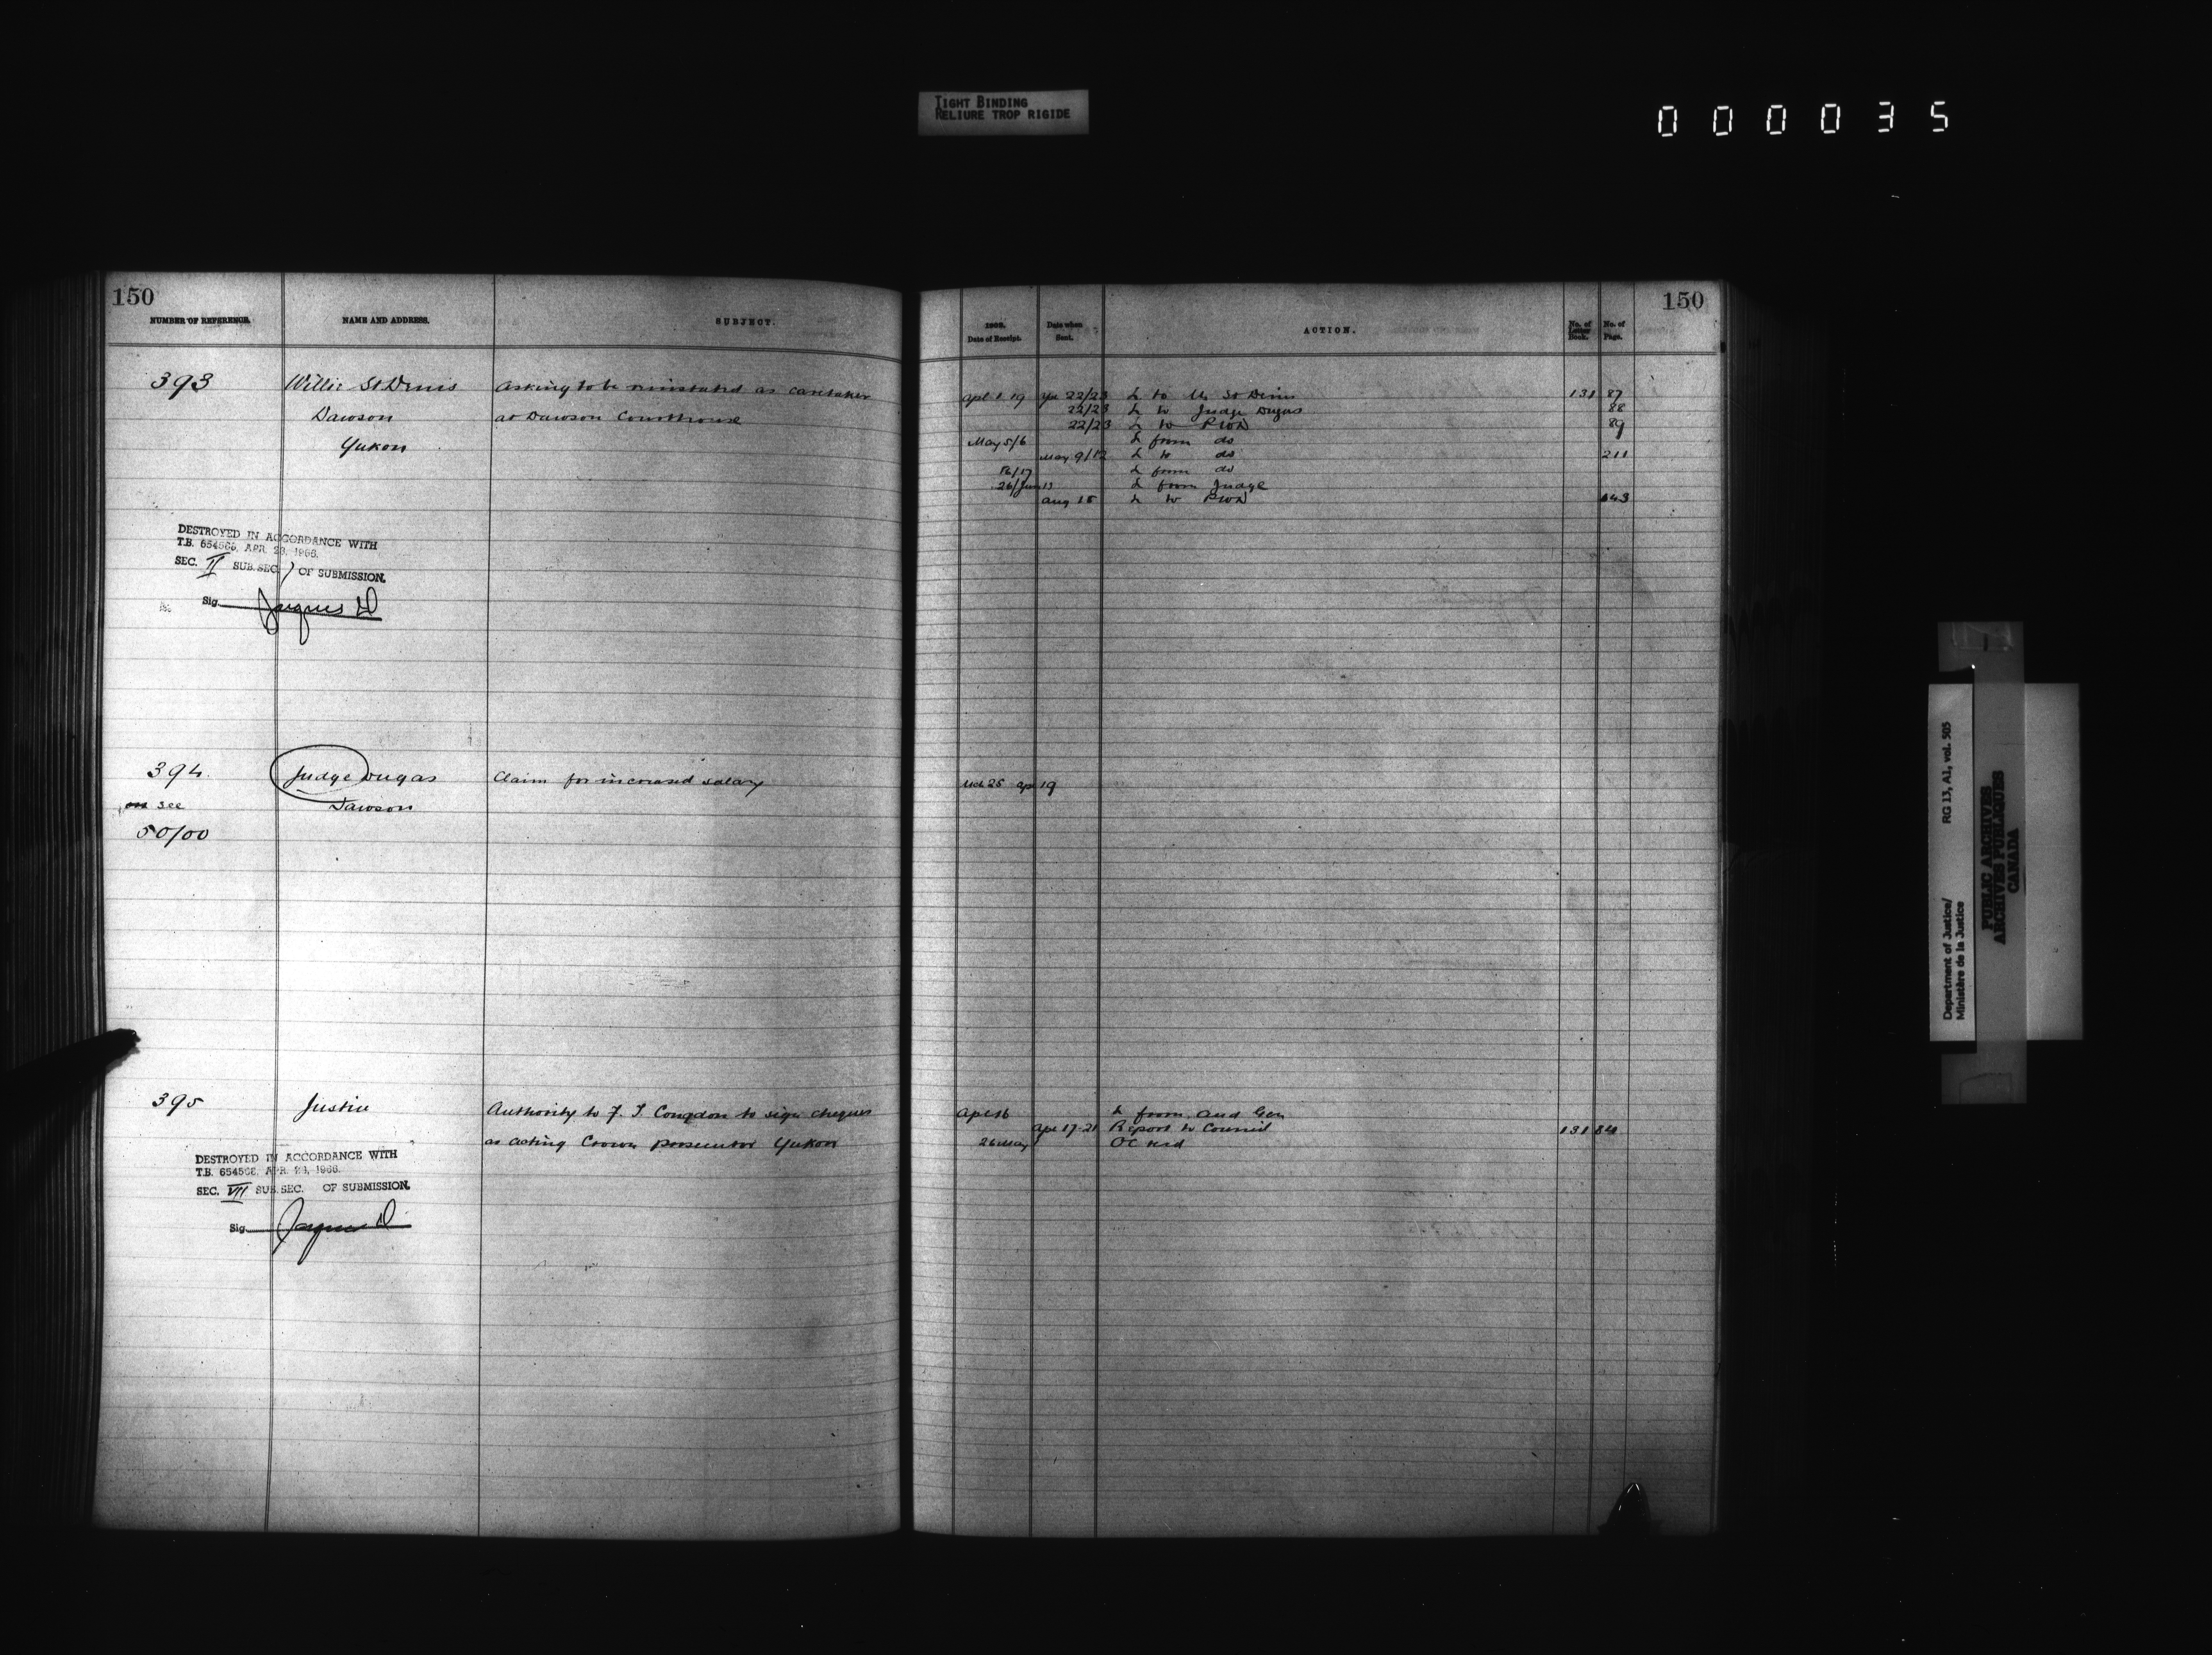 TIGHT BINDING
RELIURE TROP RIGIDE
000035
150
NUMBER OF REFERENCE. NAME AND ADDRESS. SUBJECT.
393 Willie St Denis Asking to be reinstated as caretaker
Dawson at Dawson Courthouse
Yukon
DESTROYED IN ACCORDANCE WITH
T.B. 654566, APR. 28, 1966.
SEC. II SUB. SEC. ) OF SUBMISSION.
Sig. Jacques D
394. Judge Dugas Claim for increased salary
see Dawson
50/00
395 Justice Authority to F. T. Congdon to sign cheques
as acting Crown prosecutor Yukon
DESTROYED IN ACCORDANCE WITH
T.B. 654566, APR. 28, 1966.
SEC. VII SUB. SEC. OF SUBMISSION.
Sig. Jacques D
150
1902. Date of Receipt. Date when Sent. ACTION. No. of Letter Book. No. of Page.
Apl 1 19 Ap 22/23 L to St Denis 131 87
22/23 L to Judge Dugas 88
22/23 L to PWD 89
May 5/6 L from do
May 9/12 L to do 211
16/17 L from do
26/Jun 13 L from Judge
Aug 15 L to PWD 643
Mch 25 Ap 19
Apl 16 L from Aud Gen
Apl 17-21 Report to Council 131 84
26 May OC recd
Department of Justice/
Ministère de la Justice
RG 13, A1, vol. 505
PUBLIC ARCHIVES
ARCHIVES PUBLIQUES
CANADA